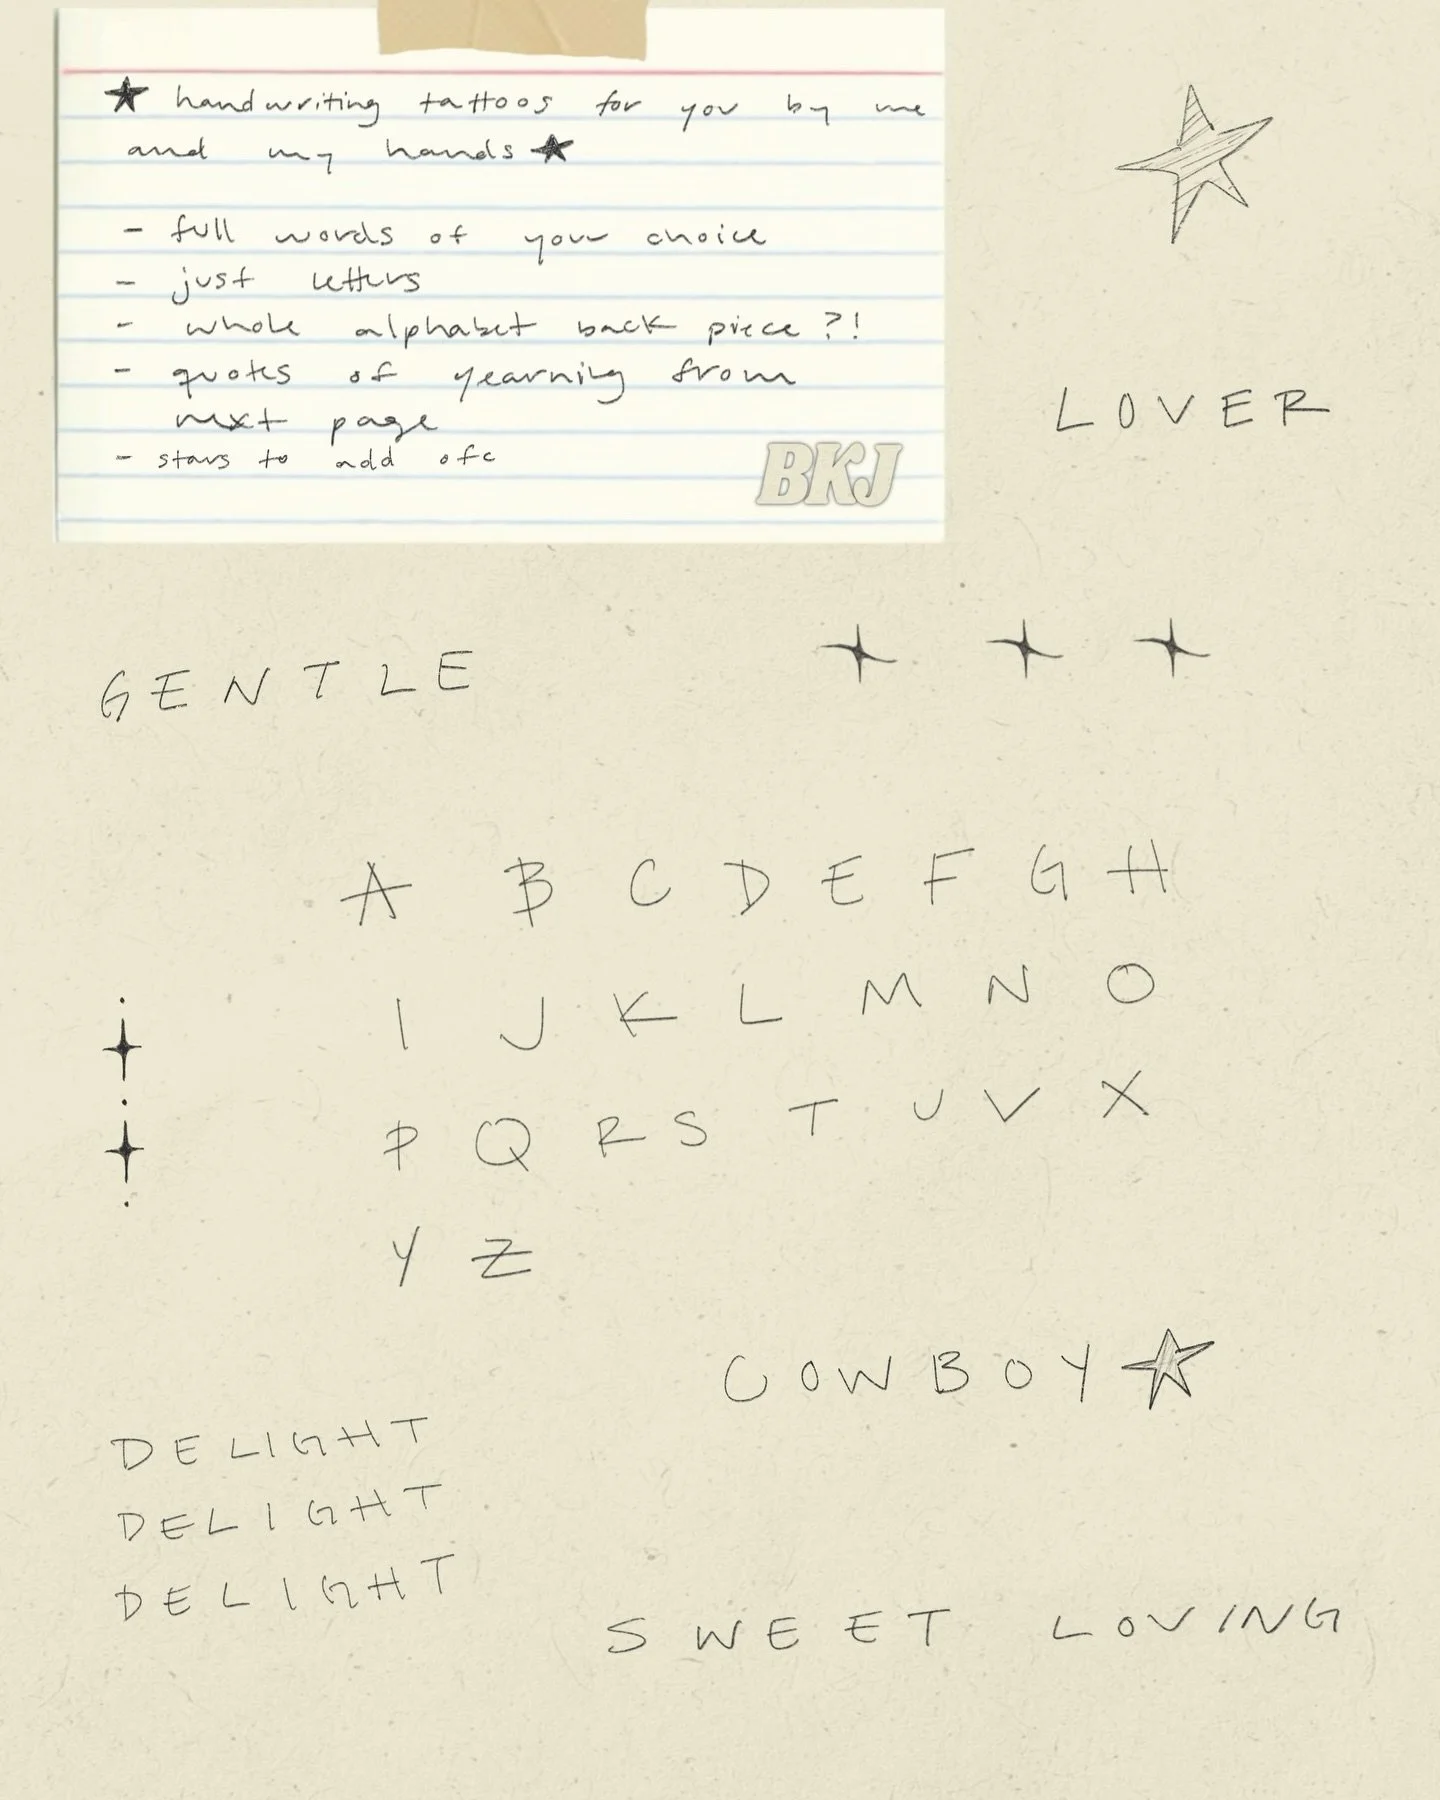 ★ handwriting tattoos for you by me
and my hands ★
- full words of your choice
- just letters
- whole alphabet back piece?!
- quotes of yearning from
next page
- stars to add ofc
BKJ
LOVER
GENTLE
A B C D E F G H
I J K L M N O
P Q R S T U V X
Y Z
COWBOY
DELIGHT
DELIGHT
DELIGHT
SWEET LOVING